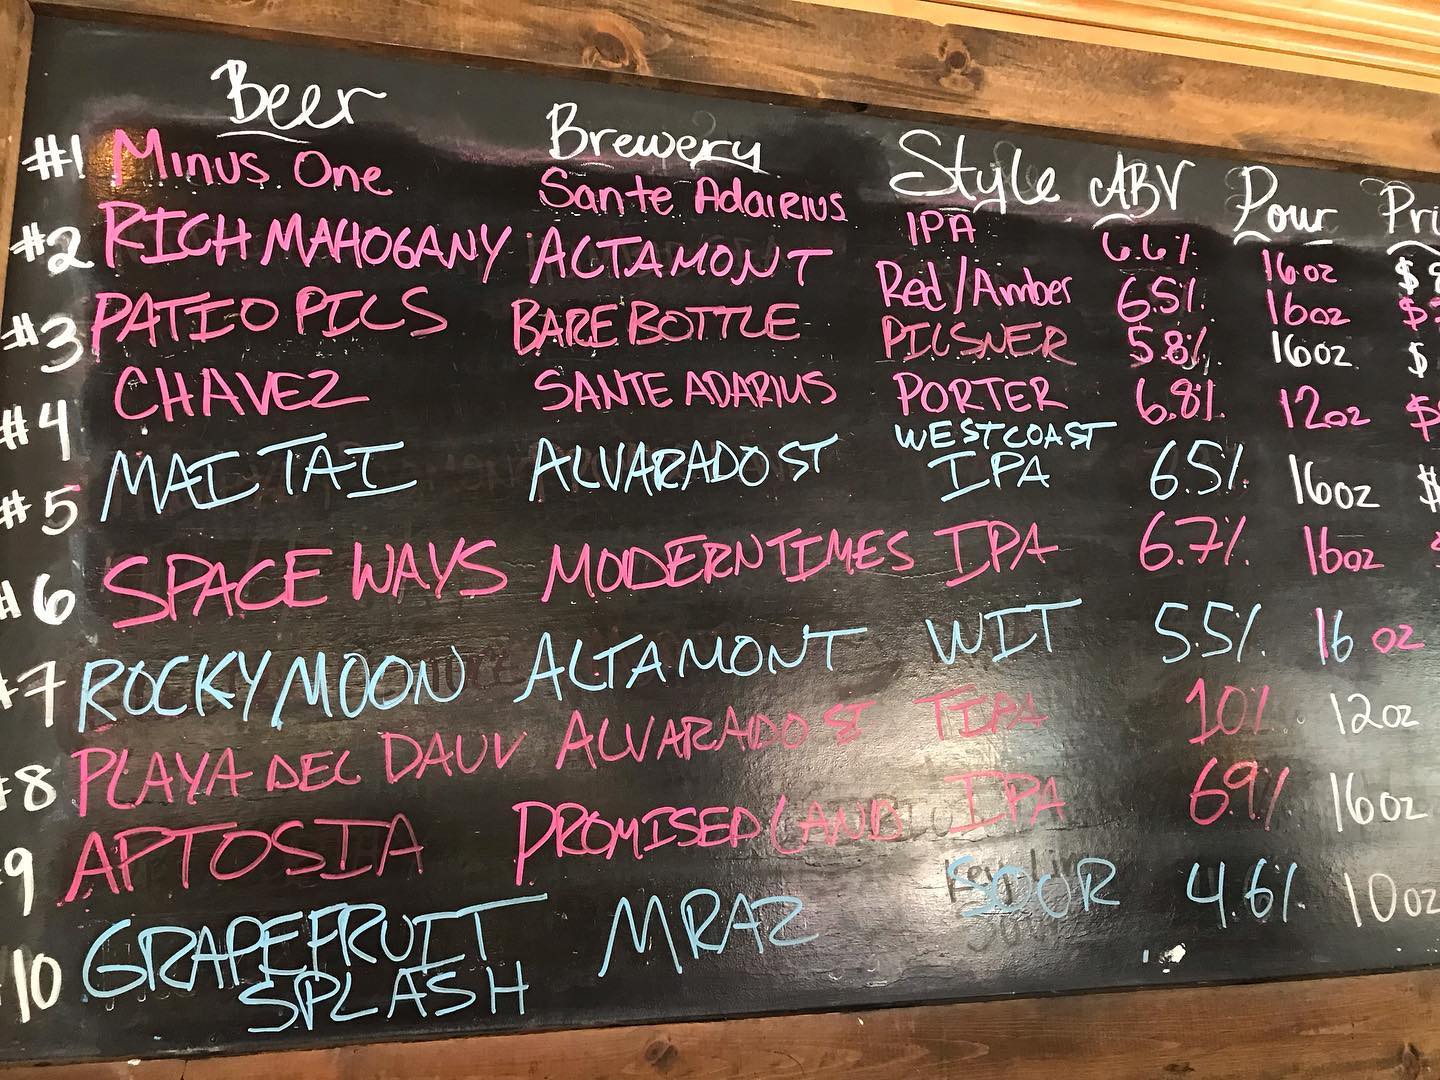 Beer Brewery Style ABV Pour Pri
#1 Minus One Sante Adairius IPA 6.6% 16oz $
#2 RICH MAHOGANY ALTAMONT Red/Amber 6.5% 16oz $
#3 PATIO PILS BARE BOTTLE PILSNER 5.8% 16oz $
#4 CHAVEZ SANTE ADARIUS PORTER 6.8% 12oz $
#5 MAI TAI ALVARADO ST WEST COAST IPA 6.5% 16oz $
#6 SPACE WAYS MODERN TIMES IPA 6.7% 16oz
#7 ROCKY MOON ALTAMONT WIT 5.5% 16 oz
#8 PLAYA DEL DAUV ALVARADO ST TIPA 10% 12oz
9 APTOSIA PROMISED LAND IPA 6.9% 16oz
10 GRAPEFRUIT SPLASH MRAZ SOUR 4.6% 10oz